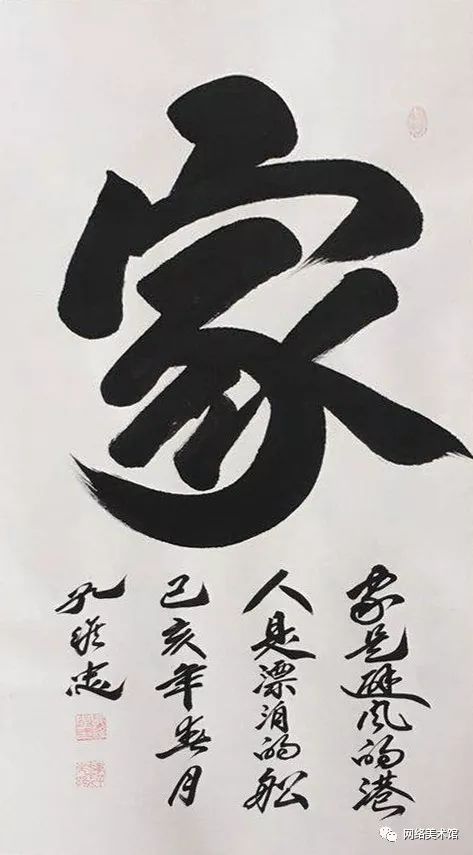 家
家是避风的港
人是漂泊的船
己亥年春月
孔
网络美术馆